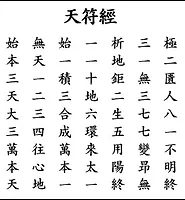 天符經
始無始一析三極
本天一一地一二
三一積十鉅無匱
天二三地二三人
大三合六生七八
三四成環五七一
萬往萬來用變不
本心本太陽昻明
天地一一終無終